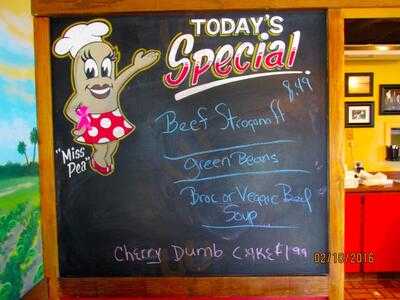 TODAY'S
Special
8.49
Beef Stroganoff
"Miss
Pea"
Green Beans
Broc or Veggie Beef
Soup
Cherry Dumb CAKE $1.99
02/18/2016